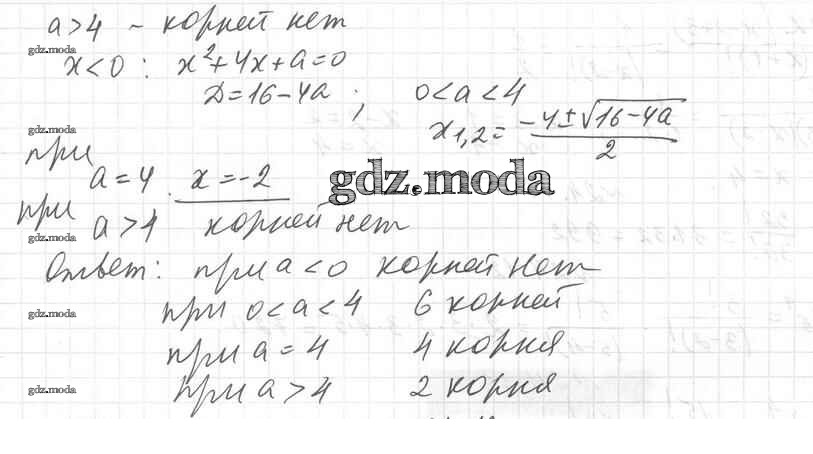 a>4 – корней нет
gdz.moda
x<0 : x²+4x+a=0
D=16-4a ; 0<a<4
gdz.moda
x₁,₂ = (-4±√(16-4a))/2
при a=4 x=-2
gdz.moda
при a>4 корней нет
gdz.moda
Ответ: при a<0 корней нет
при 0<a<4 6 корней
gdz.moda
при a=4 4 корня
при a>4 2 корня
gdz.moda